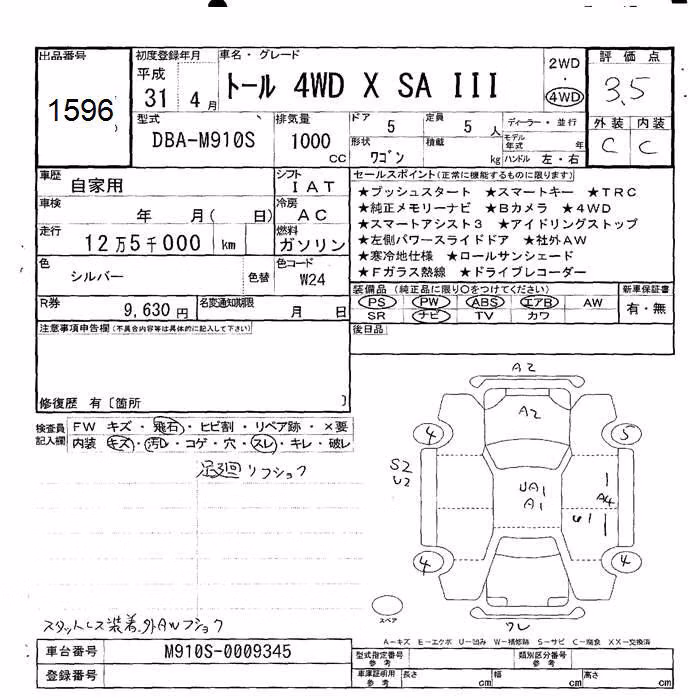 出品番号
1596
初度登録年月
平成
31 4 月
車名・グレード
トール 4WD X SA III
2WD
・
4WD
評価点
3.5
外装 内装
C C
型式
DBA-M910S
排気量
1000
cc
ドア
5
定員
5 人
形状
ワゴン
積載
kg
ディーラー・並行
モデル年式 年
ハンドル 左・右
車歴
自家用
シフト
I AT
車検
年 月( 日)
冷房
AC
走行
12万5千000 km
燃料
ガソリン
色
シルバー
色替
色コード
W24
R券
9,630 円
名変通知期限
月 日
セールスポイント(正常に機能するものに限ります)
★プッシュスタート ★スマートキー ★TRC
★純正メモリーナビ ★Bカメラ ★4WD
★スマートアシスト3 ★アイドリングストップ
★左側パワースライドドア ★社外AW
★寒冷地仕様 ★ロールサンシェード
★Fガラス熱線 ★ドライブレコーダー
装備品(純正品に限り○をつけてください)
PS PW ABS エアB AW
SR ナビ TV カワ
新車保証書
有・無
後日品
注意事項申告欄(不具合内容等は具体的に記入して下さい)
修復歴 有〔箇所 〕
検査員記入欄
FW キズ・飛石・ヒビ割・リペア跡・×要
内装 キズ・汚レ・コゲ・穴・スレ・キレ・破レ
足廻リフショク
スタットレス装着、外AWフショク
A2
A2
4
5
S2
U2
UA1
A1
A4
U1
4
4
スペア
ワレ
A−キズ E−エクボ U−凹み W−補修跡 S−サビ C−腐食 XX−交換済
車台番号
M910S-0009345
登録番号
型式指定番号
参考
類別区分番号
参考
車庫証明用
参考
長さ cm
幅 cm
高さ cm